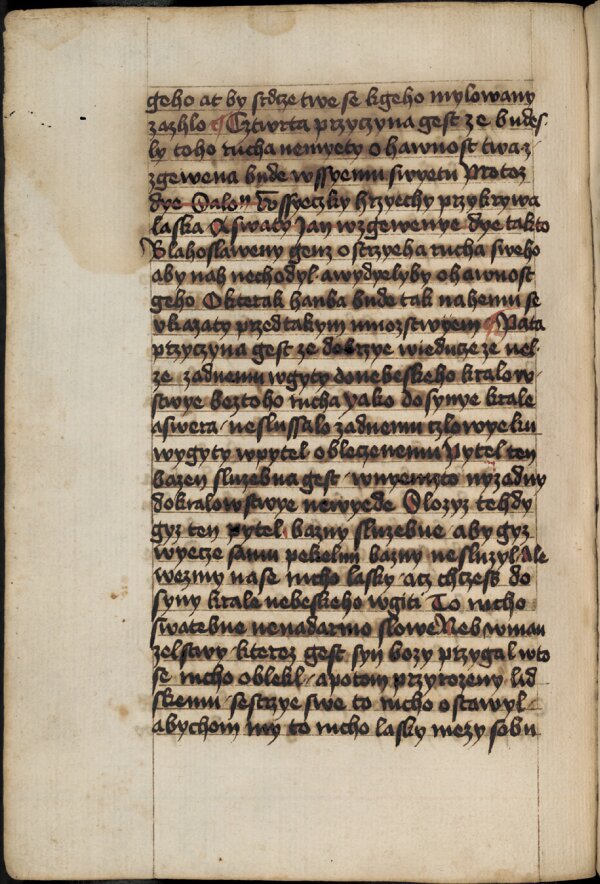 geho at by srdcze twe se kgeho mylowany
zazhlo ¶ Cztwrta przyczyna gest ze budes
ly toho rucha nemyety ohawnost twa z
zgewena bude wssyemu swyetu Protoz
dye Salon wssyeczky hrzyechy przykrywa
laska A swaty Jan wzgewenye dye takto
Blahoslaweny genz ostrzyeha rucha sweho
aby nah nechodyl awydyelyby ohawnost
geho O kterak hanba bude tak nahemu se
vkazaty przed takym mnozstwyem ¶ Pata
przyczyna gest ze dobrzye wieducze ze nel
ze zadnemu wgyty donebeskeho kralow
stwye beztoho rucha yako do synye krale
aswera neslussalo zadnemu czlowyeku
wygyty wpytel obleczenemu Pytel ten
bazen sluzebna gest wnyemzto nyzadny
dokralowstwye newyede Slozyz tehdy
gyz ten pytel bazny sluzebne aby gyz
wyecze samu pekelnu bazny nesluzyl Ale
wezmy nase rucho lasky acz chczess do
syny krale nebeskeho wgiti To rucho
swatebne nenadarmo slowe Neb wman
zelstwy kterez gest syn bozy przygal wto
se rucho oblekl apotom przyrozeny lid
skemu sestrzye swe to rucho ostawyl
abychom my to rucho lasky mezy sobu